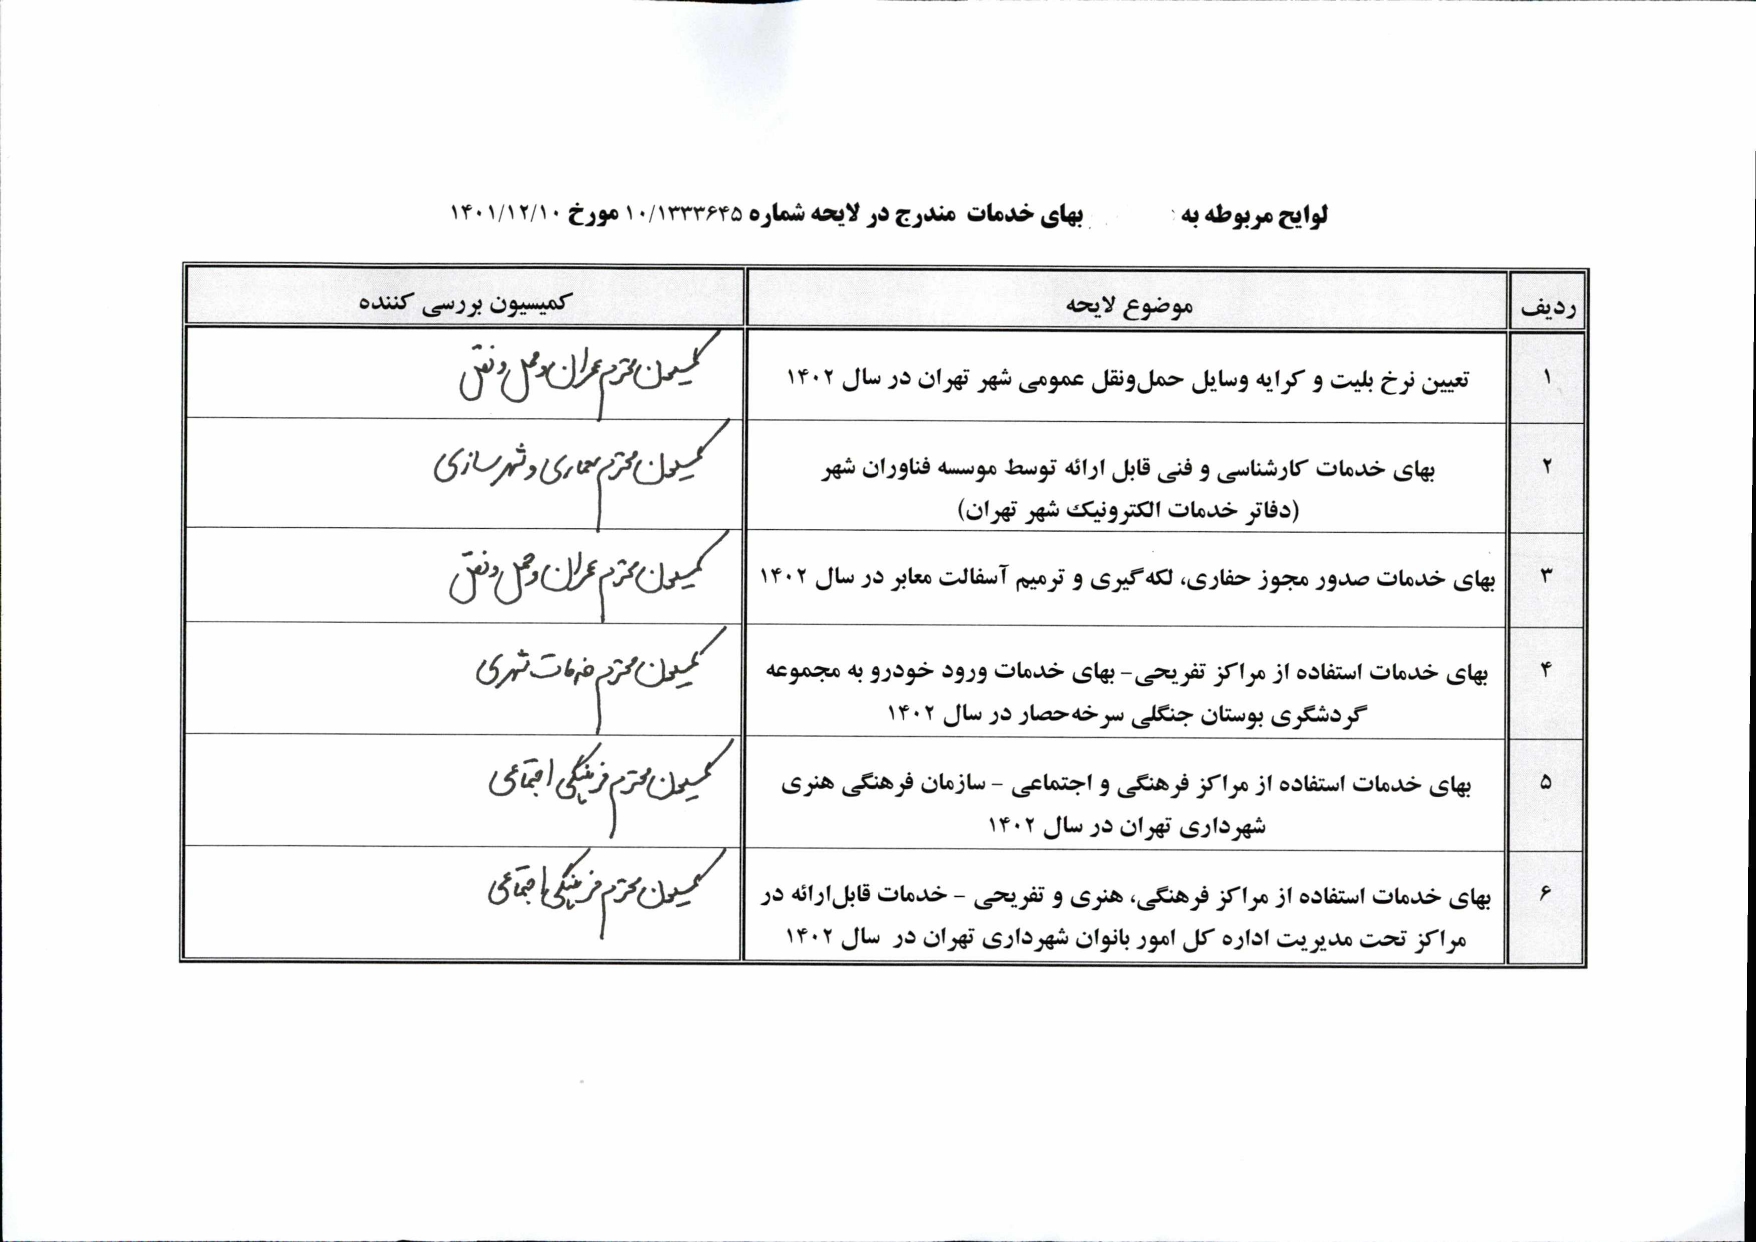 لوایح مربوطه به : بهای خدمات مندرج در لایحه شماره ۱۰/۱۳۳۳۶۴۵ مورخ ۱۴۰۱/۱۲/۱۰
ردیف موضوع لایحه کمیسیون بررسی کننده
۱ تعیین نرخ بلیت و کرایه وسایل حمل‌ونقل عمومی شهر تهران در سال ۱۴۰۲ کمیسیون محترم عمران و حمل و نقل
۲ بهای خدمات کارشناسی و فنی قابل ارائه توسط موسسه فناوران شهر کمیسیون محترم معماری و شهرسازی
(دفاتر خدمات الکترونیک شهر تهران)
۳ بهای خدمات صدور مجوز حفاری، لکه‌گیری و ترمیم آسفالت معابر در سال ۱۴۰۲ کمیسیون محترم عمران و حمل و نقل
۴ بهای خدمات استفاده از مراکز تفریحی- بهای خدمات ورود خودرو به مجموعه کمیسیون محترم خدمات شهری
گردشگری بوستان جنگلی سرخه‌حصار در سال ۱۴۰۲
۵ بهای خدمات استفاده از مراکز فرهنگی و اجتماعی - سازمان فرهنگی هنری کمیسیون محترم فرهنگی اجتماعی
شهرداری تهران در سال ۱۴۰۲
۶ بهای خدمات استفاده از مراکز فرهنگی، هنری و تفریحی - خدمات قابل‌ارائه در کمیسیون محترم فرهنگی اجتماعی
مراکز تحت مدیریت اداره کل امور بانوان شهرداری تهران در سال ۱۴۰۲